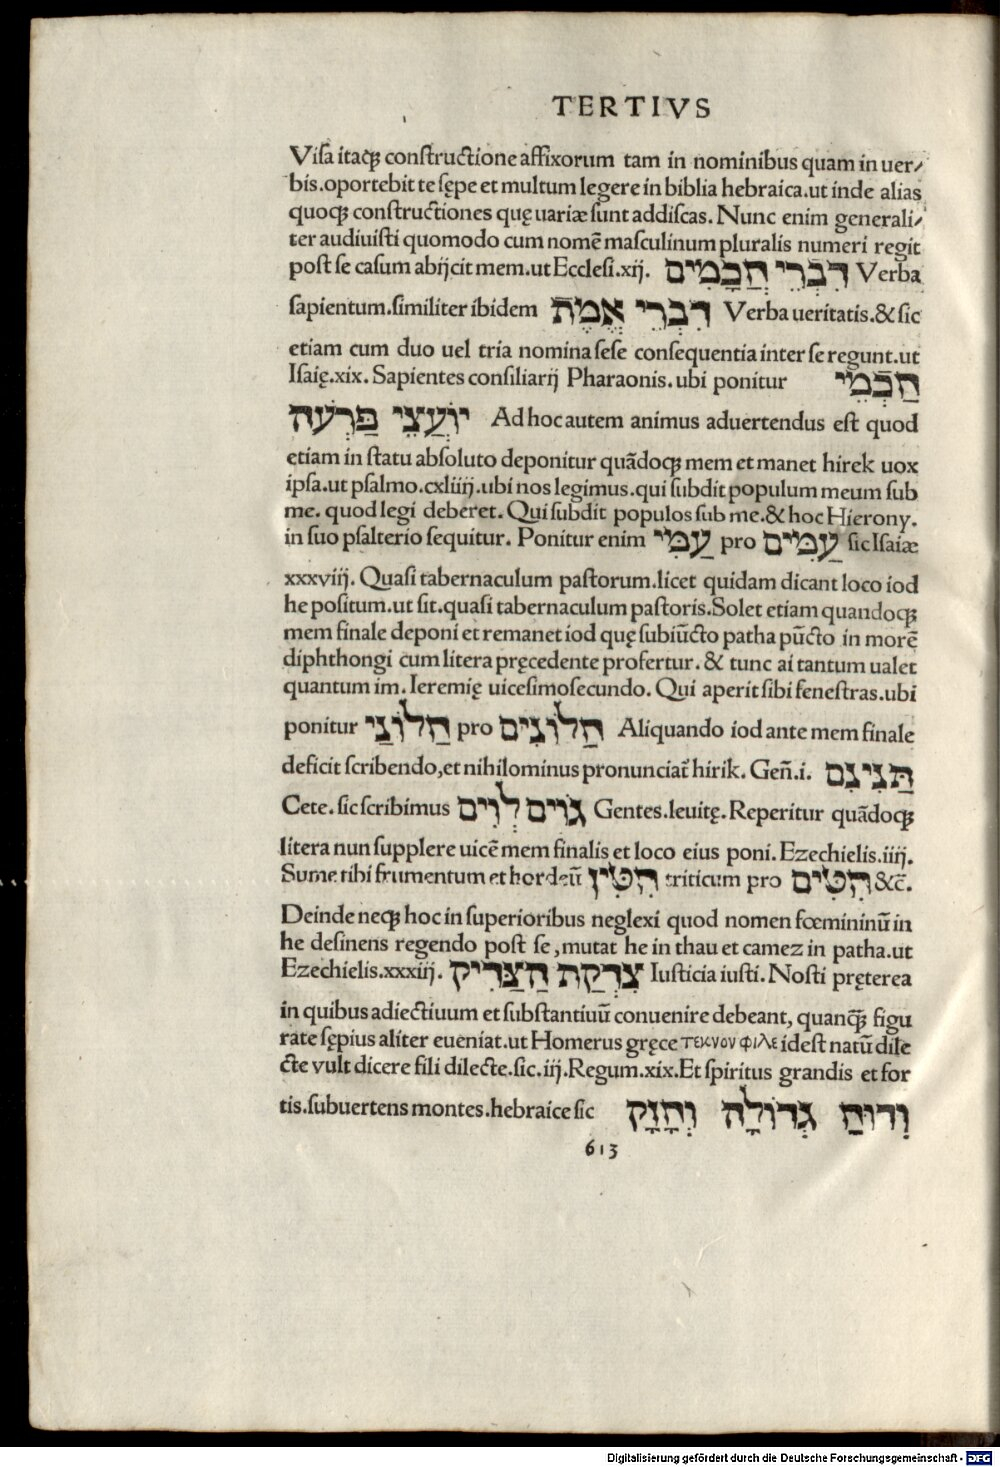 TERTIVS
Visa itaqꝫ constructione affixorum tam in nominibus quam in uer/
bis.oportebit te sępe et multum legere in biblia hebraica.ut inde alias
quoqꝫ constructiones quę uariæ sunt addiscas. Nunc enim generali/
ter audiuisti quomodo cum nomē masculinum pluralis numeri regit
post se casum abijcit mem.ut Ecclesi.xij. דִּבְרֵי חֲכָמִים Verba
sapientum.similiter ibidem דִּבְרֵי אֱמֶת Verba ueritatis.& sic
etiam cum duo uel tria nomina sese consequentia inter se regunt.ut
Isaię.xix. Sapientes consiliarij Pharaonis.ubi ponitur חַכְמֵי
יוֹעֲצֵי פַּרְעֹה Ad hoc autem animus aduertendus est quod
etiam in statu absoluto deponitur quādoqꝫ mem et manet hirek uox
ipsa.ut psalmo.cxliiij.ubi nos legimus.qui subdit populum meum sub
me. quod legi deberet. Qui subdit populos sub me.& hoc Hierony.
in suo psalterio sequitur. Ponitur enim עַמִּי pro עַמִּים sic Isaiæ
xxxviij. Quasi tabernaculum pastorum.licet quidam dicant loco iod
he positum.ut sit.quasi tabernaculum pastoris.Solet etiam quandoqꝫ
mem finale deponi et remanet iod quę subiūcto patha pūcto in morē
diphthongi cum litera pręcedente profertur. & tunc ai tantum ualet
quantum im. Ieremię uicesimosecundo. Qui aperit sibi fenestras.ubi
ponitur חַלּוֹנַי pro חַלּוֹנִים Aliquando iod ante mem finale
deficit scribendo,et nihilominus pronunciat᷑ hirik. Geñ.i. תַּנִּינִם
Cete. sic scribimus גֹּוִים לְוִים Gentes.leuitę. Reperitur quādoqꝫ
litera nun supplere uicē mem finalis et loco eius poni. Ezechielis.iiij.
Sume tibi frumentum et hordeū חִטִּין triticum pro חִטִּים &c̄.
Deinde neqꝫ hoc in superioribus neglexi quod nomen fœmininū in
he desinens regendo post se,mutat he in thau et camez in patha.ut
Ezechielis.xxxiij. צִדְקַת הַצַּדִּיק Iusticia iusti. Nosti pręterea
in quibus adiectiuum et substantiuū conuenire debeant, quanqꝫ̄ figu
rate sępius aliter eueniat.ut Homerus gręce τεκνον φιλε idest natū dile
cte vult dicere fili dilecte.sic.iij.Regum.xix.Et spiritus grandis et for
tis.subuertens montes.hebraice sic וְרוּחַ גְּדוֹלָה וְחָזָק
613
Digitalisierung gefördert durch die Deutsche Forschungsgemeinschaft - DFG